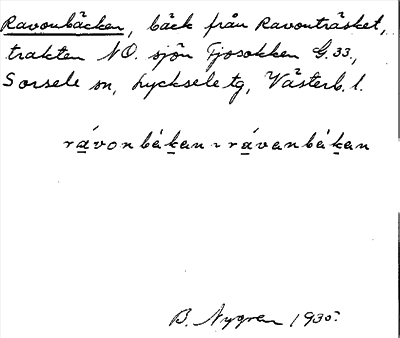 Ravonbäcken, bäck från Ravonträsket,
trakten NO. sjön Tjosokken G. 33,
Sorsele sn, Lycksele tg, Västerb. l.
rávonbäḱan ~ rávanbäḱan
B. Nygren 1935.